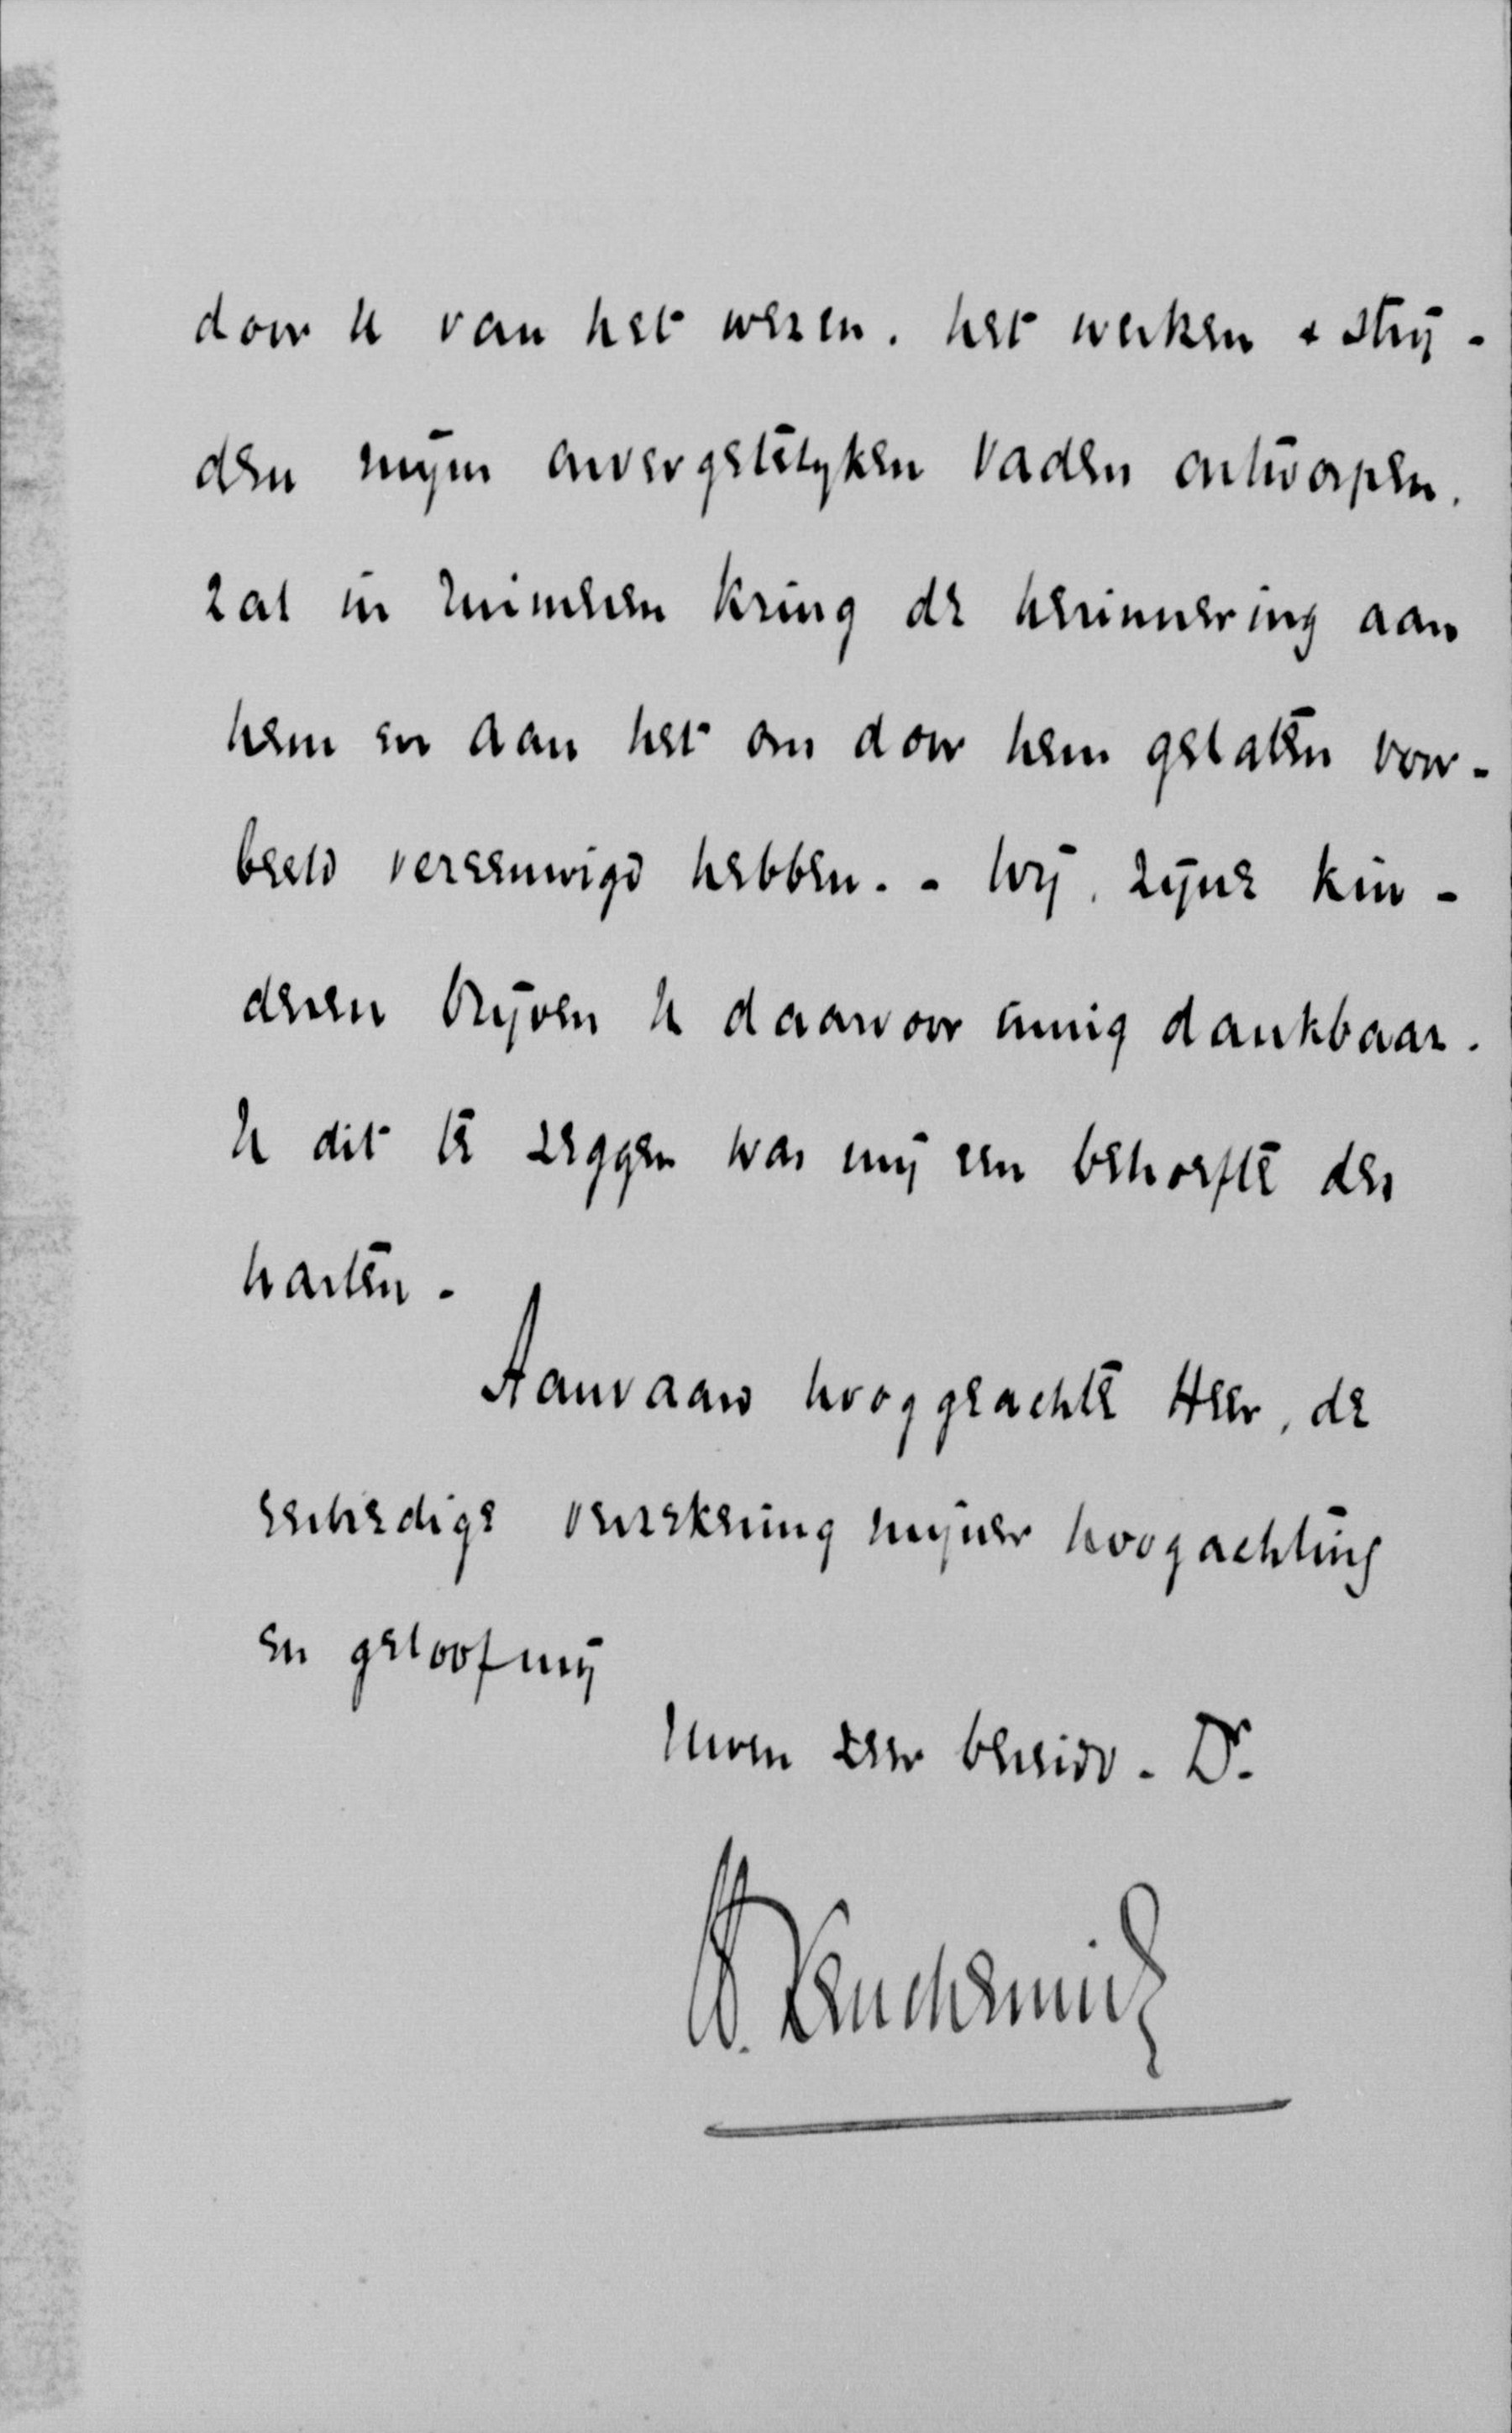 door U van het wezen, het werken & strij-
den mijns onvergetelyken Vaders ontworpen,
zal in ruimeren kring de herinnering aan
hem en aan het ons door hem gelaten voor-
beeld vereeuwigd hebben. - Wij, zijne kin-
deren blijven U daarvoor innig dankbaar.
U dit te zeggen was mij een behoefte des
harten.
Aanvaard hooggeachte Heer, de
eerbiedige verzekering mijner hoogachting
en geloof mij
Uwen zeer bereidv. Dr.